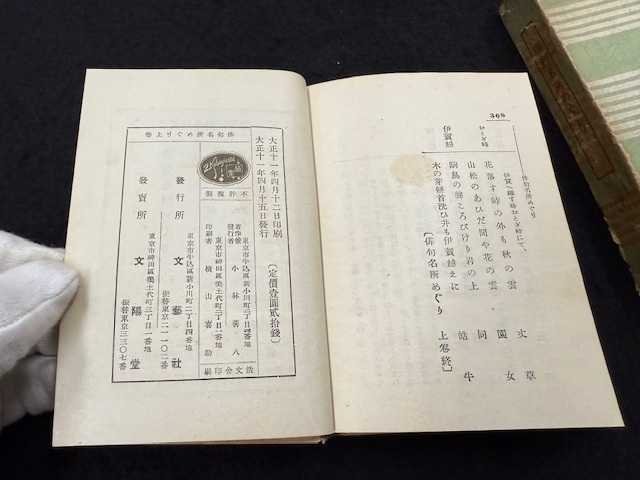 368
俳句名所めぐり
伊賀へ越す時おとぎ峠にて、
おとぎ峠
花落す峠の外も秋の雲
丈草
山松のあひだ間や花の雲
園女
駒鳥の聲ころびけり岩の上
同
伊賀越
木の芽研首洗ひ井も伊賀越えに
皓牛
〔俳句名所めぐり 上卷終〕
大正十一年四月十二日印刷
大正十一年四月十五日發行
〔定價壹圓貳拾錢〕
俳句名所めぐり上卷
不許複製
著作兼發行者
東京市牛込區新小川町二丁目四番地
小林善八
印刷者
東京市神田區美土代町二丁目一番地
横山喜助
活文舍印刷
發行所
東京市牛込區新小川町二丁目四番地
文藝社
振替東京二一一〇二番
發賣所
東京市神田區美土代町三丁目一番地
文陽堂
振替東京三三〇七番